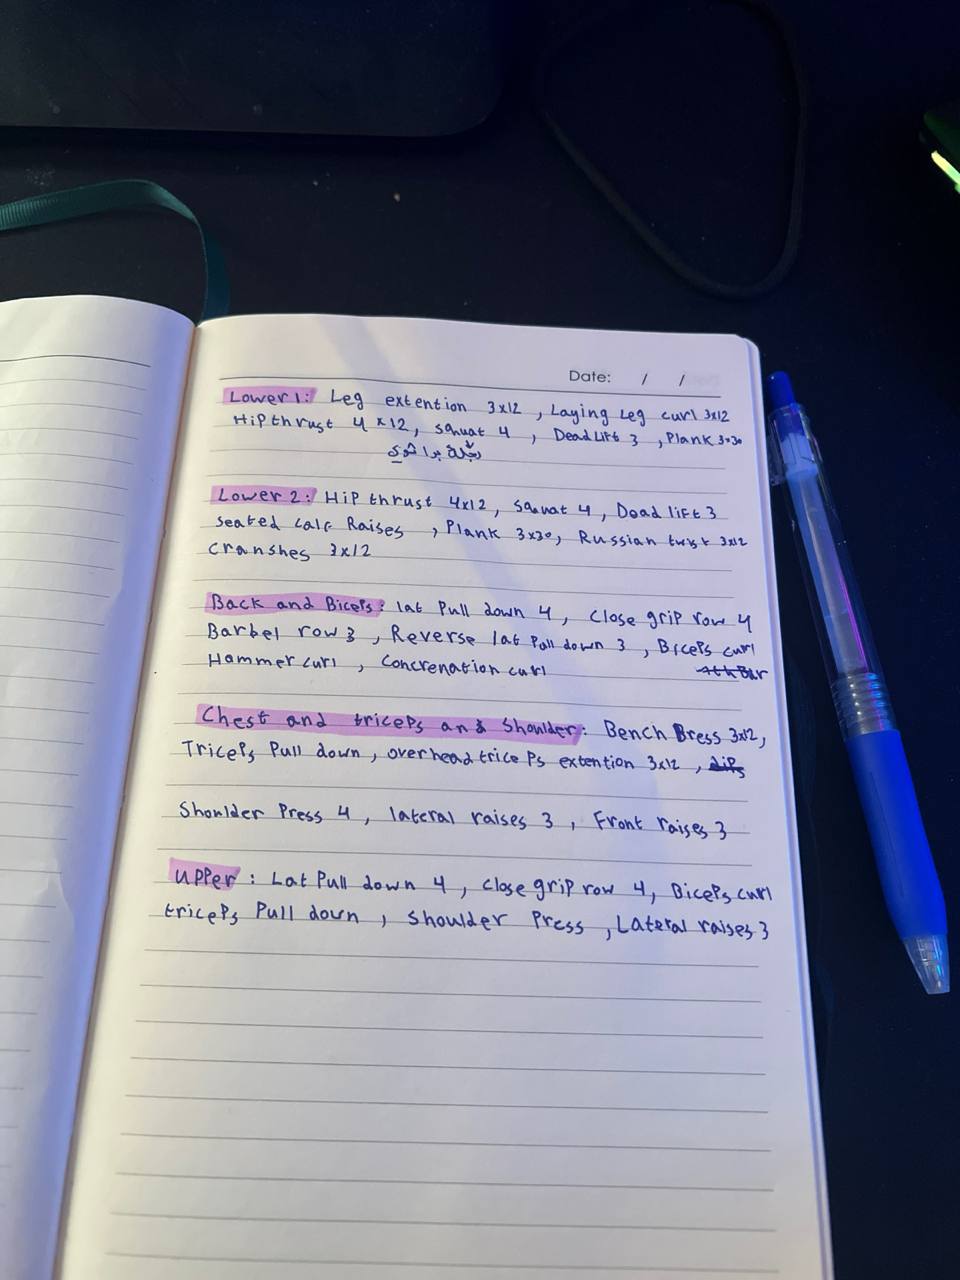 Date: / /
Lower 1: Leg extention 3x12, Laying Leg curl 3x12
Hip thrust 4x12, squat 4, Dead Lift 3, Plank 3x30
Lower 2: Hip thrust 4x12, squat 4, Dead lift 3
seated calf Raises, Plank 3x30, Russian twist 3x12
cranshes 3x12
Back and Biceps: lat Pull down 4, close grip row 4
Barbel row 3, Reverse lat Pull down 3, Biceps curl
Hammer curl, concrenation curl
Chest and triceps and shoulder: Bench Bress 3x12,
Triceps Pull down, overhead triceps extention 3x12, dips
Shoulder Press 4, lateral raises 3, Front raises 3
Upper: Lat Pull down 4, close grip row 4, Biceps curl
triceps Pull down, shoulder Press, Lateral raises 3